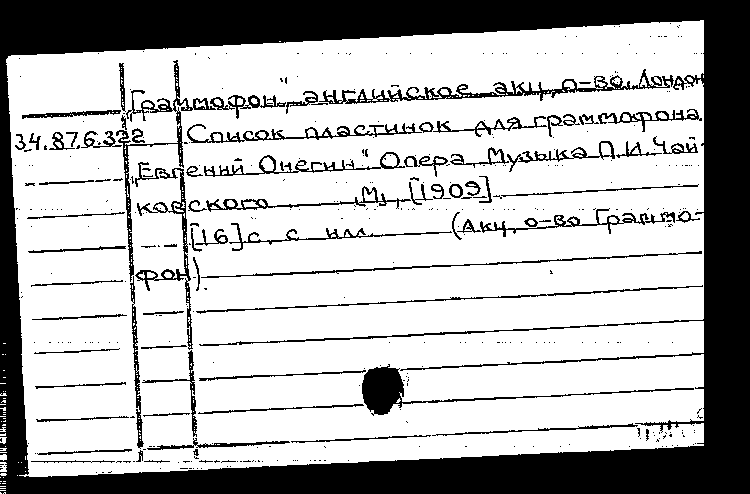 „Граммофон", английское акц. о-во. Лондон
34.87.6.322 Список пластинок для граммофона.
„Евгений Онегин". Опера. Музыка П.И. Чай-
ковского М., [1909]
[16] с. с илл. (Акц. о-во Граммо-
фон).